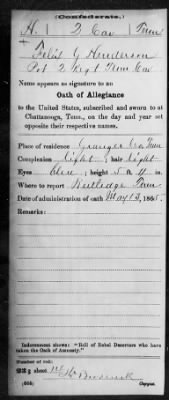 (Confederate.)
H. 2 Cav Tenn
Felix G Henderson
Pvt 2 Regt Tenn Cav
Name appears as signature to an
Oath of Allegiance
to the United States, subscribed and sworn to at
Chattanooga, Tenn., on the day and year set
opposite their respective names.
Place of residence Grainger Co Tenn
Complexion light; hair light
Eyes blue; height 5 ft. 11 in.
Where to report Rutledge Tenn
Date of administration of oath May 13, 1865.
Remarks:
Indorsement shows: "Roll of Rebel Deserters who have
taken the Oath of Amnesty."
Number of roll:
sheet
Copyist.